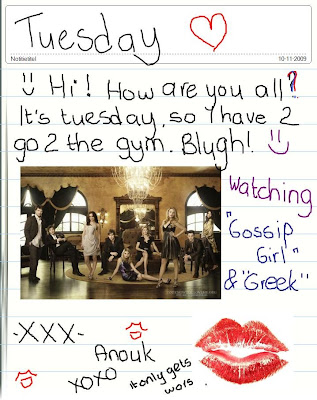 Tuesday
Notitietitel 10-11-2009
Hi! How are you all?
It's tuesday, so I have 2
go 2 the gym. Blygh!
Watching
"Gossip
Girl"
& "Greek"
-XXX-
Anouk
XOXO
it only gets
wors.